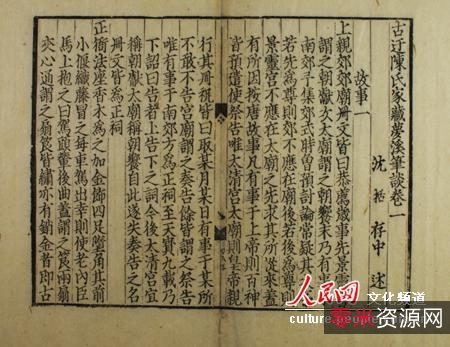 古迂陳氏家藏夢溪筆談卷一
沈括存中述
故事一
上親郊郊廟冊文皆曰恭薦歲事先景靈
謂之朝獻次太廟謂之朝饗末乃有事
南郊予集郊式時曾預討論常疑其
若先為尊則郊不應在廟後若後為尊
景靈宮不應在太廟之先求其所從來蓋
有所因按唐故事凡有事于上帝則百神
皆預遣使祭告唯太清宮太廟則皇帝親
行其冊祝皆曰取某月某日有事于某所
不敢不告宮廟謂之奏告餘皆謂之祭告
唯有事于南郊方為正祠至天寶九載乃
下詔曰告者上告下之詞今後太清宮宜
稱朝獻太廟稱朝饗自此遂失奏告之名
冊文皆為正祠
正衙法座香木為之加金飾四足墮角其前
小偃織藤冒之每車駕出幸則使老內臣
馬上抱之曰駕頭輦後曲蓋謂之筤兩扇
夾心通謂之扇筤皆繡亦有銷金者即古
人民网 文化频道
culture.people
资源网